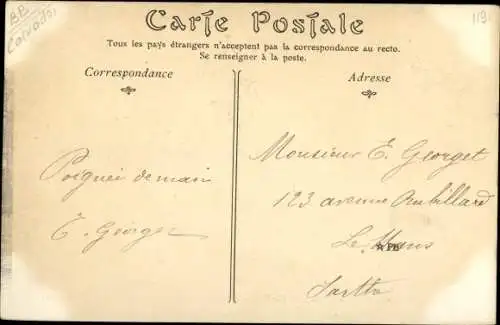 BB
Calvados
119
Carte Postale
Tous les pays étrangers n'acceptent pas la correspondance au recto.
Se renseigner à la poste.
Correspondance
Adresse
Poignée de main
E. Georget
Monsieur E. Georget
123 avenue
Le Mans
Sarthe